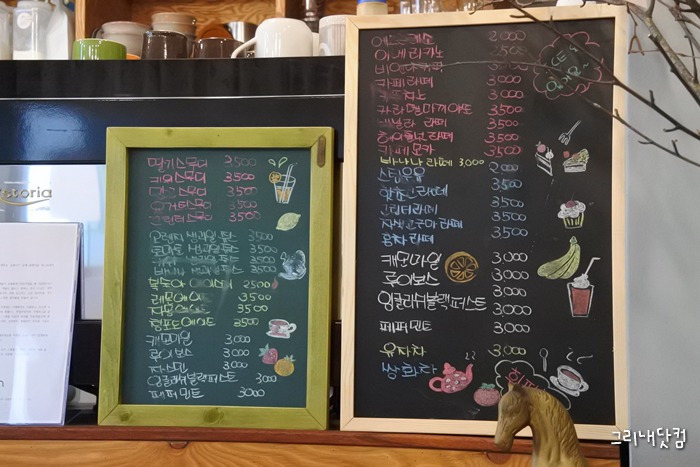 etoria
딸기스무디 3500
키위스무디 3500
망고스무디 3500
요거트스무디 3500
그린티스무디 3500
오렌지 생과일쥬스 3500
토마토 생과일쥬스 3500
키위 생과일쥬스 3500
바나나 생과일쥬스 3500
복숭아 아이스티 2500
레몬에이드 3500
자몽에이드 3500
청포도에이드 3500
캐모마일 3000
루이보스 3000
자스민 3000
잉글리쉬블랙퍼스트 3000
페퍼민트 3000
에스프레소 2000
아메리카노 2500
비엔나커피 3000
카페라떼 3000
카푸치노 3000
카라멜마끼아또 3500
바닐라 라떼 3500
헤이즐넛라떼 3500
카페모카 3500
바나나 라떼 3000
스팀우유 2000
핫초코라떼 3500
그린티라떼 3500
자색고구마라떼 3500
홍차라떼 3500
캐모마일 3000
루이보스 3000
잉글리쉬블랙퍼스트 3000
페퍼민트 3000
유자차 3,000
쌍화차
그리내닷컴